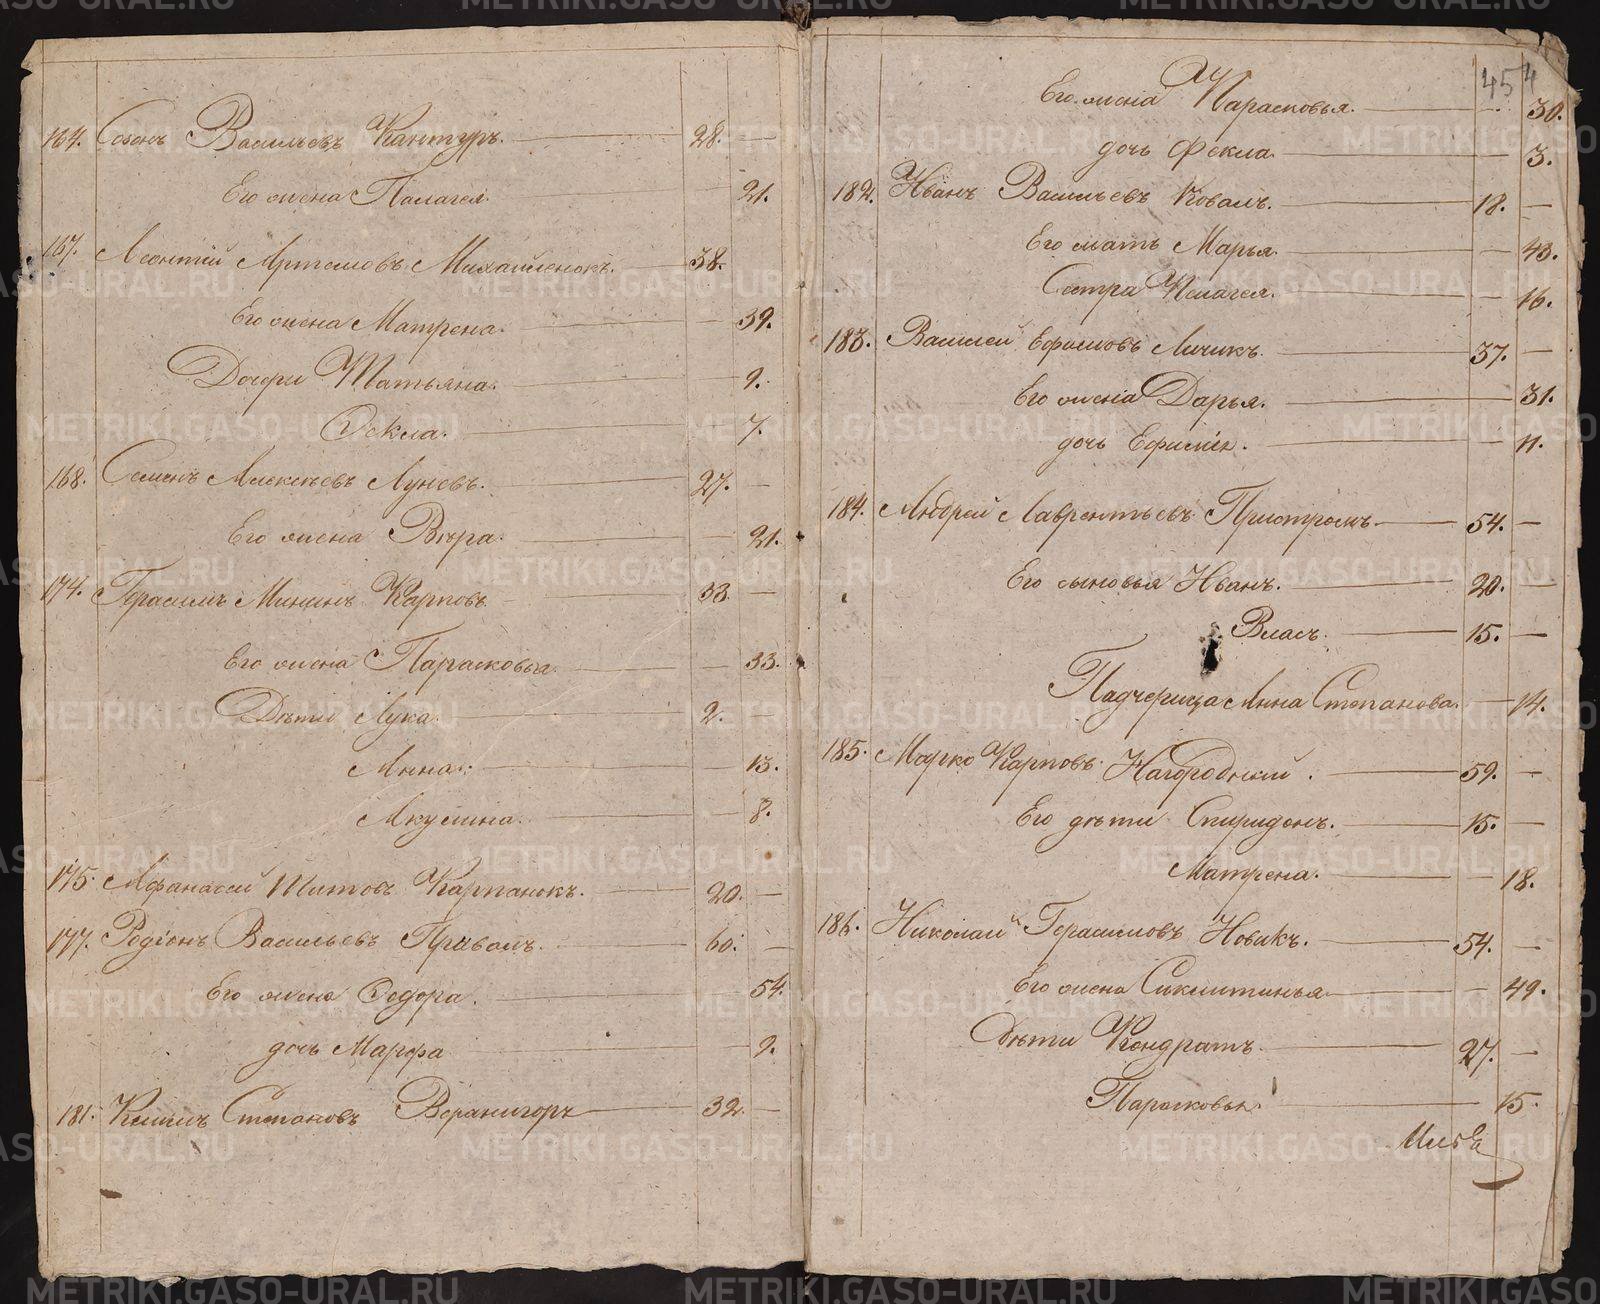 164. Созонъ Васильевъ Кантуръ. 28. —
Его жена Палагея. — 21.
167. Леонтій Артемовъ Михайленокъ. 38. —
Его жена Матрена. — 39.
Дочери Татьяна. — 9.
Ѳекла. — 7.
168. Семенъ Алексѣевъ Луневъ. 27. —
Его жена Вѣра. — 21.
174. Герасимъ Мининъ Карповъ 33. —
Его жена Парасковья. — 33.
Дѣти Лука. 2. —
Анна. — 13.
Акулина. — 8.
175. Афанасей Титовъ Карпанокъ. 20. —
177. Родіонъ Васильевъ Приваль. 60. —
Его жена Ѳедора. — 54.
дочь Марфа — 9.
181. Климъ Степановъ Вернигоръ 32. —
454
Его жена Парасковья. — 30.
дочь Фекла. — 3.
182. Иванъ Васильевъ Коваль. 18. —
Его мать Марья — 43.
Сестра Пелагея. — 16.
183. Василей Ефимовъ Личикъ. 37. —
Его жена Дарья. — 31.
дочь Ефимія. — 11.
184. Андрей Лаврентьевъ Пристромъ 54. —
Его сыновья Иванъ. 20. —
Власъ. 15. —
Падчерица Анна Степанова. — 14.
185. Марко Карповъ Нагородний. 59. —
Его дѣти Спиридонъ. 15. —
Матрена. — 18.
186. Николай Герасимовъ Новикъ. 54. —
Его жена — 49.
Дѣти Кондратъ. 27. —
Парасковья. — 15.